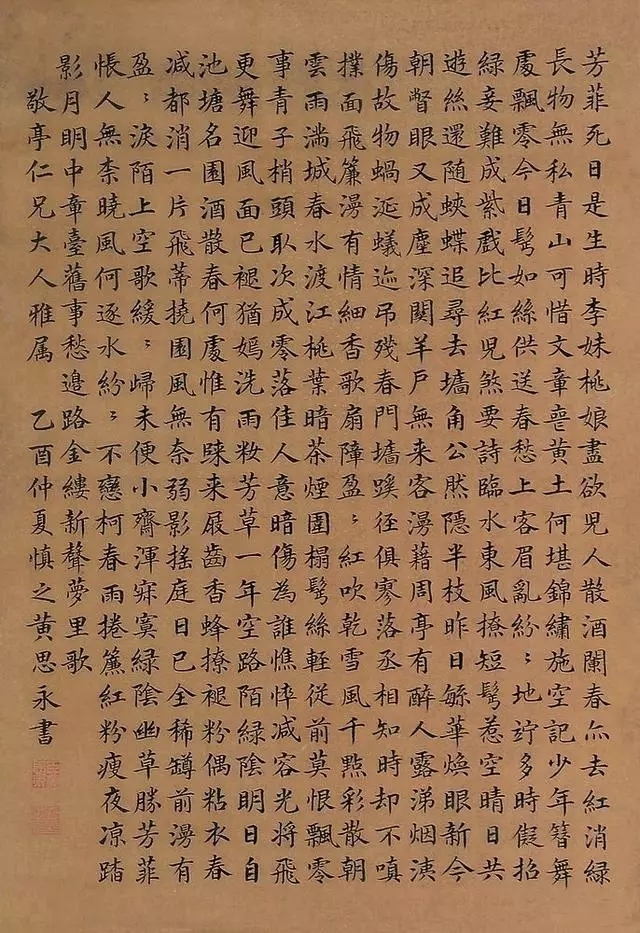 芳菲死日是生時李妹桃娘盡欲兒人散酒闌春亦去紅消綠
長物無私青山可惜文章喪黃土何堪錦繡施空記少年簪舞
處飄零今日鬂如絲供送春愁上客眉亂紛〻地竚多時假招
綠妾難成紫戲比紅兒煞要詩臨水東風撩短鬂惹空晴日共
遊絲還随蛺蝶追尋去墻角公然隱半枝昨日緐華煥眼新今
朝瞥眼又成塵深關羊戶無来客漫藉周亭有醉人露涕烟洟
傷故物蝸涎蟻迹吊殘春門墻蹊徑俱寥落丞相知時却不嗔
撲面飛簾漫有情細香歌扇障盈〻紅吹乾雪風千點彩散朝
雲雨滿城春水渡江桃葉暗茶煙圍榻鬂絲輕從前莫恨飄零
事青子梢頭取次成零落佳人意暗傷為誰憔悴减容光將飛
更舞迎風面已褪猶嫣洗雨妝芳草一年空路陌綠陰明日自
池塘名園酒散春何處惟有踈来屐齒香蜂撩褪粉偶粘衣春
减都消一片飛蒂撓園風無奈弱影搖庭日已全稀罇前漫有
盈〻淚陌上空歌緩〻歸未便小齋渾寂寞綠陰幽草勝芳菲
悵人無柰曉風何逐水紛〻不戀柯春雨捲簾紅粉瘦夜凉踏
影月明中章臺舊事愁邉路金縷新聲夢里歌
敬亭仁兄大人雅属 乙酉仲夏慎之黃思永書